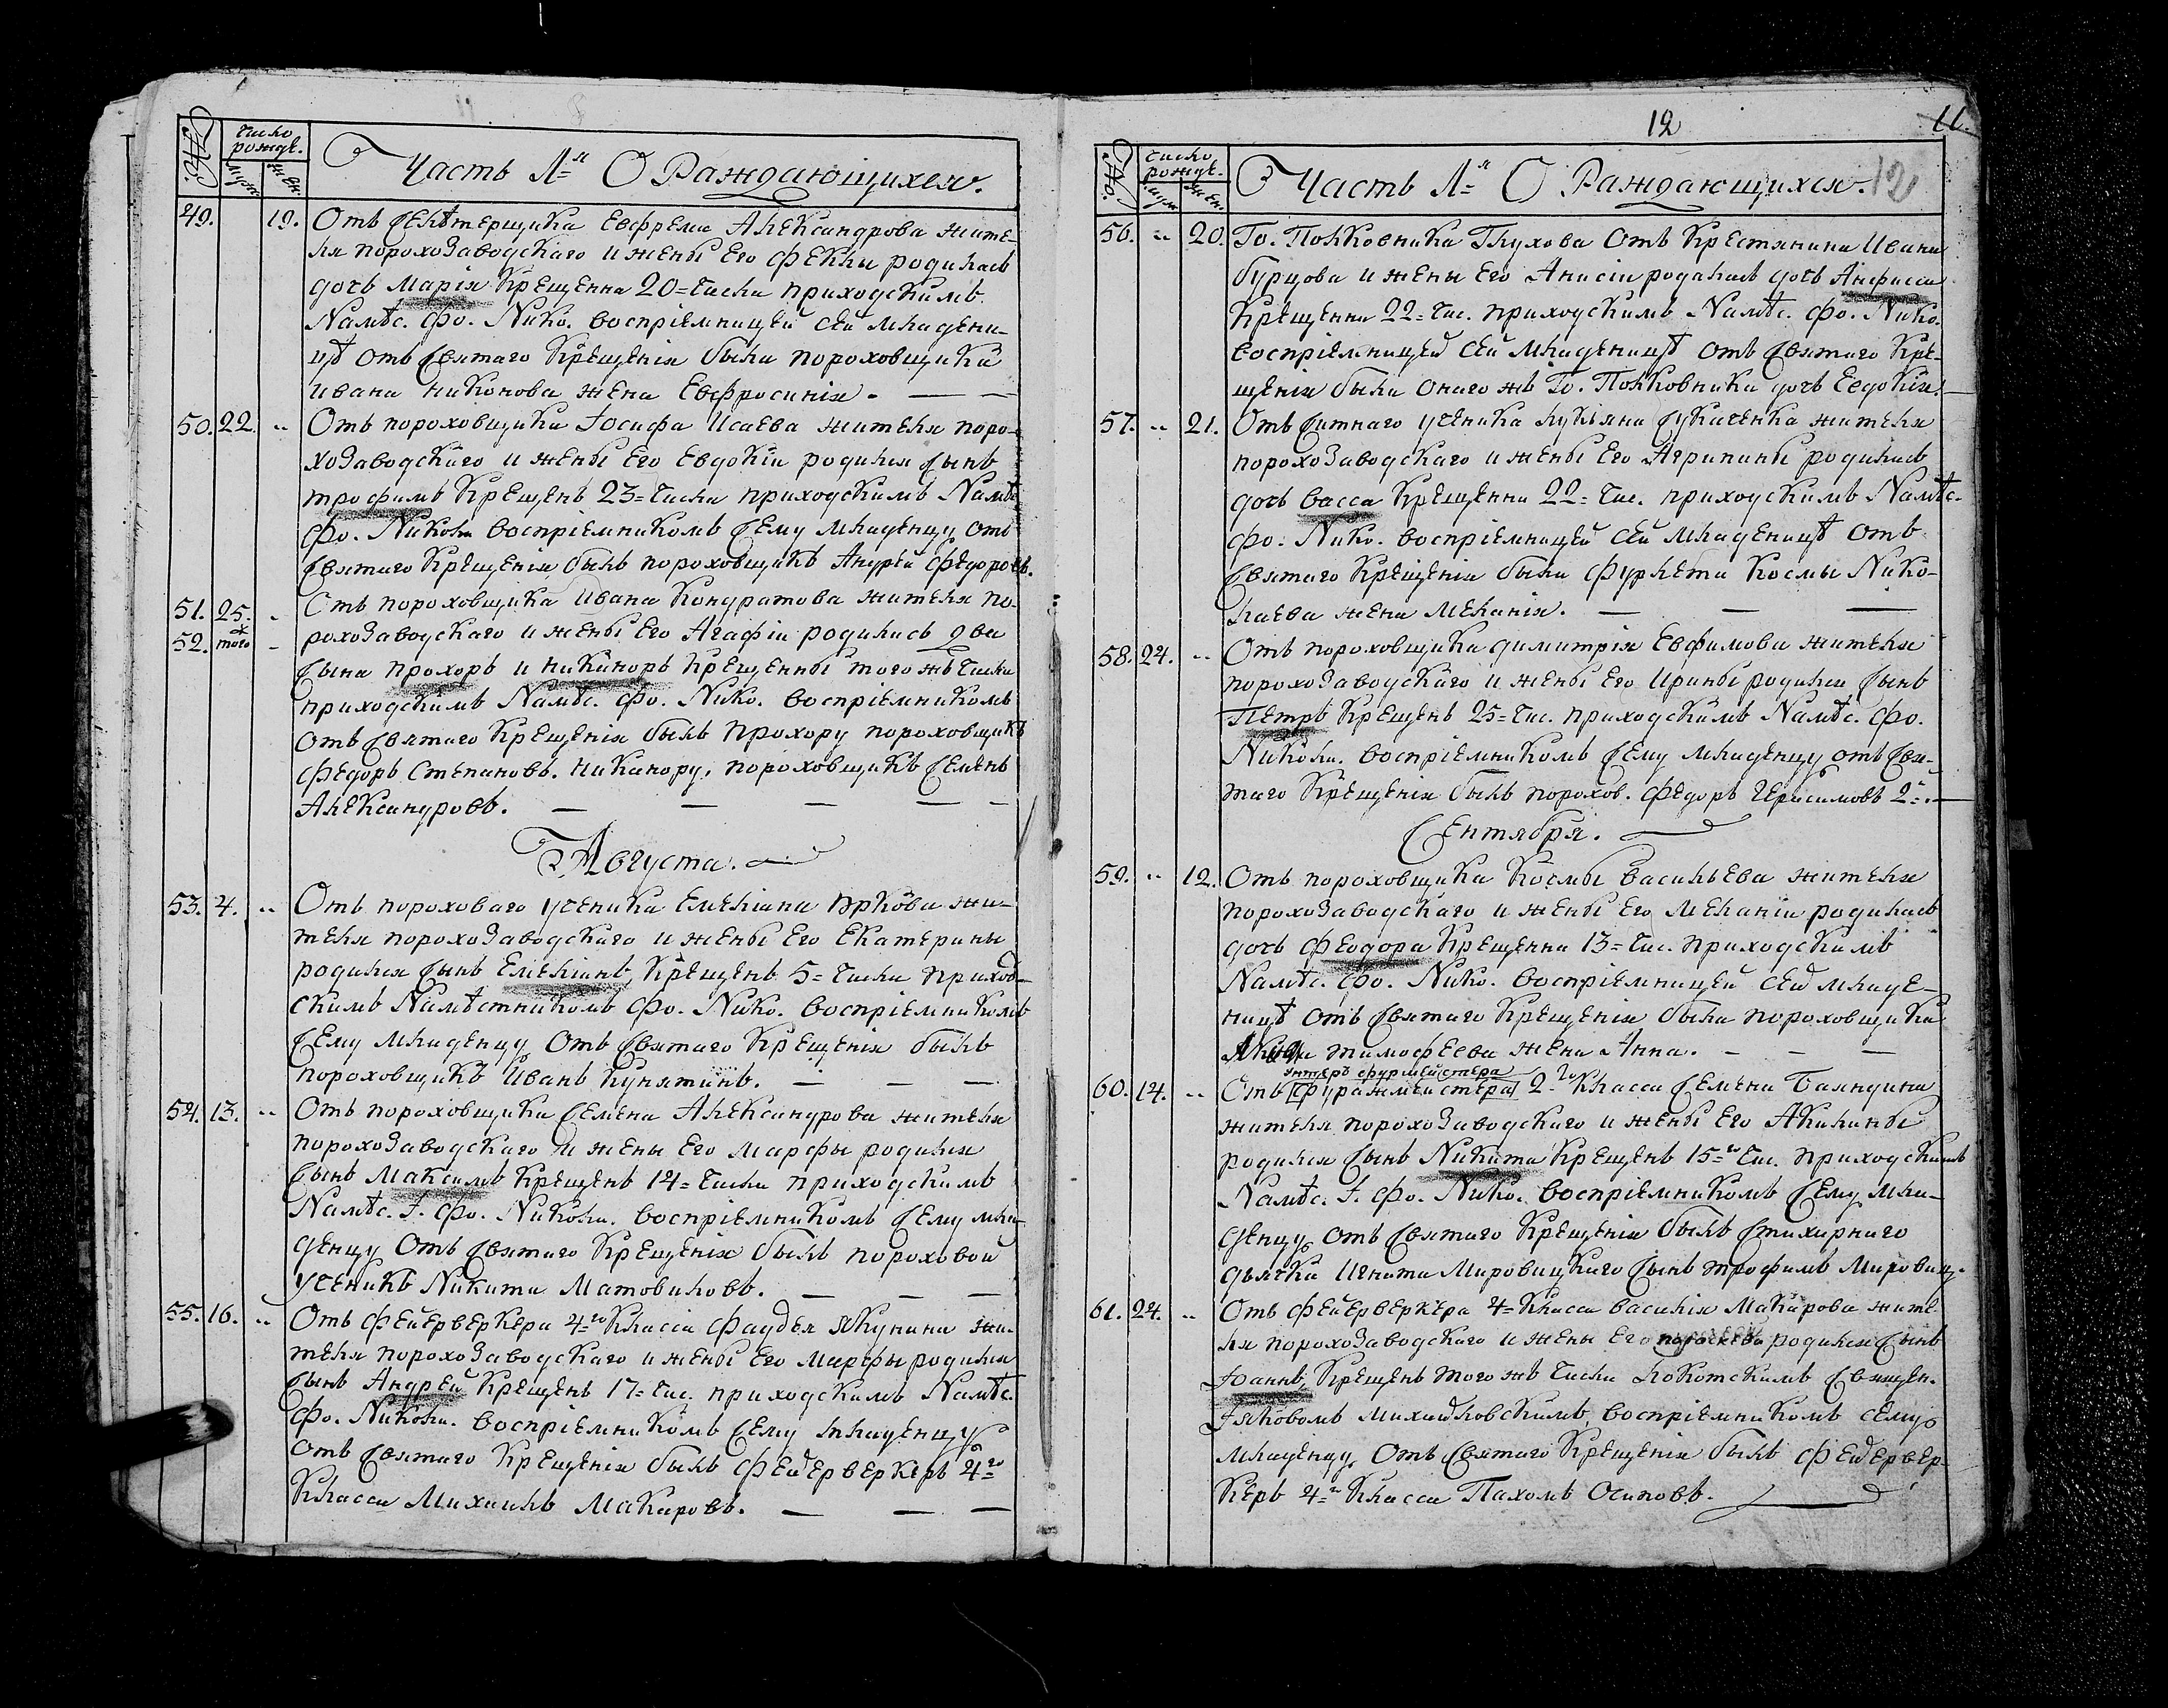 №№.
число рождe.
муж.
жен.
Часть 1=я О Раждающихся.
49. 19. Отъ селѣтерщика Евфрема Александрова жите-
ля порохозаводскаго и жены Его Феклы родилась
дочь Марія крещенна 20= числа приходскимъ
Намѣс. Фо. Нико. воспріемницей сей младени-
цѣ отъ святаго крещенія была пороховщика
Ивана Никонова жена Евфросинія.
50. 22. „ Отъ пороховщика Іосифа Исаева жителя поро-
хозаводскаго и жены Его Евдокіи родился сынъ
трофимъ крещенъ 23= числа приходскимъ Намѣс
Фо. Никола воспріемникомъ сему младенцу отъ
святаго крещенія былъ пороховщикъ Андрей Федоровъ.
51. 25. „ Отъ пороховщика Ивана Кондратова жителя по-
52. того ж „ рохозаводскаго и жены Его Агафіи родились два
сына прохоръ и никаноръ крещенны того жъ числа
приходскимъ Намѣс. Фо. Нико. воспріемникомъ
отъ святаго крещенія былъ Прохору пороховщикъ
Федоръ Степановъ. Никанору, пороховщикъ Семенъ
Александровъ.
Августа.
53. 4. „ Отъ пороховаго ученика Емеліана жи-
теля порохозаводскаго и жены Его Екатерины
родился сынъ Емеліанъ, крещенъ 5= числа приход-
скимъ Намѣстникомъ Фо. Нико. воспріемникомъ
сему младенцу отъ святаго крещенія былъ
пороховщикъ Иванъ Кунятинъ.
54. 13. „ Отъ пороховщика Семена Александрова жителя
порохозаводскаго и жены Его Марфы родился
сынъ Максимъ крещенъ 14= числа приходскимъ
Намѣс. І. Фо. Никола. воспріемникомъ сему мла-
денцу отъ святаго крещенія былъ пороховой
ученикъ Никита Матовиловъ.
55. 16. „ Отъ Фейерверкера 4=го класса Фаддея Якунина жи-
теля порохозаводскаго и жены Его Марфы родился
сынъ Андрей крещенъ 17= чис. приходскимъ Намѣс.
Фо. Никола. воспріемникомъ сему младенцу
отъ святаго крещенія былъ Фейерверкеръ 4=го
класса Михаилъ Макаровъ.
12
11.
№№.
число рождe.
муж
жен.
Часть 1=я О Раждающихся.
12
56. „ 20. Го. Полковника Глухова отъ крестянина Ивана
Бурцова и жены Его Анисіи родилась дочь Анфиса
крещенна 22= чис. приходскимъ Намѣс. Фо. Нико.
воспріемницей сей младеницѣ отъ святаго кре-
щенія была онаго жъ Го. Полковника дочь Евдокія.
57. „ 21. Отъ ситнаго ученика лукіяна Сукаченка жителя
порохозаводскаго и жены Его Агрипины родилась
дочь васса крещенна 22= чис. приходскимъ Намѣс.
Фо. Нико. воспріемницей сей младеницѣ отъ
святаго крещенія была Фурлета Космы Нико-
лаева жена Меланія.
58. 24. „ Отъ пороховщика димитрія Евфимова жителя
порохозаводскаго и жены Его Ирины родился сынъ
Петръ крещенъ 25= чис. приходскимъ Намѣс. Фо.
Никола. воспріемникомъ сему младенцу отъ свя-
таго крещенія былъ порохов. Федоръ Герасимовъ 2=й.
Сентября.
59. „ 12. Отъ пороховщика Космы васильева жителя
порохозаводскаго и жены Его Меланіи родилась
дочь Феодора крещенна 13= чис. приходскимъ
Намѣс. Фо. Нико. воспріемницей сей младе-
ницѣ отъ святаго крещенія была пороховщика
тимофеева жена Анна.
унтеръ фурмейстера
60. 14. „ Отъ [фуражмейстера] 2=го класса Семена Баяндина
жителя порохозаводскаго и жены Его Акилины
родился сынъ Никита крещенъ 15=го чис. приходскимъ
Намѣс. І. Фо. Нико. воспріемникомъ сему мла-
денцу, отъ святаго крещенія былъ стихарнаго
дьячка Игната Мировицкаго сынъ трофимъ Мировиц.
61. 24. „ Отъ Фейерверкера 4= класса василія Макарова жите-
ля порохозаводскаго и жены Его параскевы родился сынъ
Іоаннъ, крещенъ того жъ числа локотскимъ священ.
Іяковомъ михайловскимъ, воспріемникомъ сему
младенцу, отъ святаго крещенія былъ фейервер-
керъ 4=го класса Пахомъ Осиповъ.